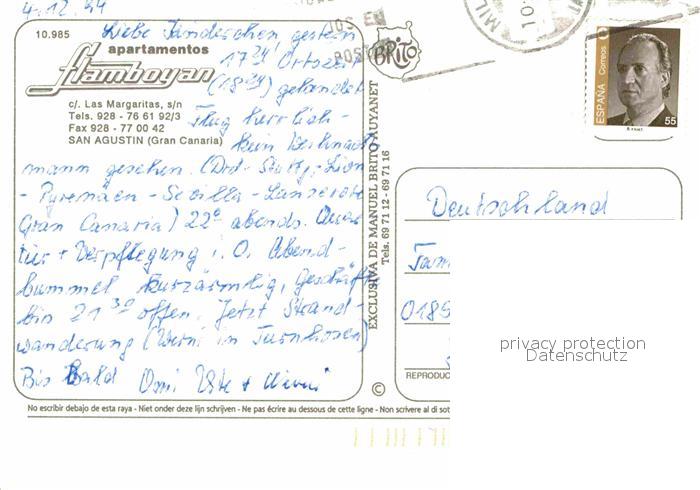 4.12.94
Liebe Sanderchen gestern
10.985
apartamentos
17 24 Ortszeit
Flamboyan
(18 24) gelandet
c/. Las Margaritas, s/n
Tels. 928 - 76 61 92/3
Fax 928 - 77 00 42
SAN AGUSTIN (Gran Canaria)
Flug herrlich -
kein Weihnachts
mann gesehen. (Drd - Stuttg. - Lion
- Pyrenäen - Sevilla - Lanzerote
Gran Canaria) 22° abends. Quar
tier + Verpflegung i. O. Abend-
bummel kurzärmlig, Geschäfte
bis 21 30 offen. Jetzt Strand-
wanderung (Werni in Turnhosen)
Bis Bald Omi Ute + Werni
EXCLUSIVA DE MANUEL BRITO AUYANET
Tels. 69 71 12 - 69 71 16
BRITO
ESPAÑA Correos
55
Deutschland
Fam
REPRODUC
©
No escribir debajo de esta raya - Niet onder deze lijn schrijven - Ne pas écrire au dessous de cette ligne - Non scrivere al di sot
privacy protection
Datenschutz